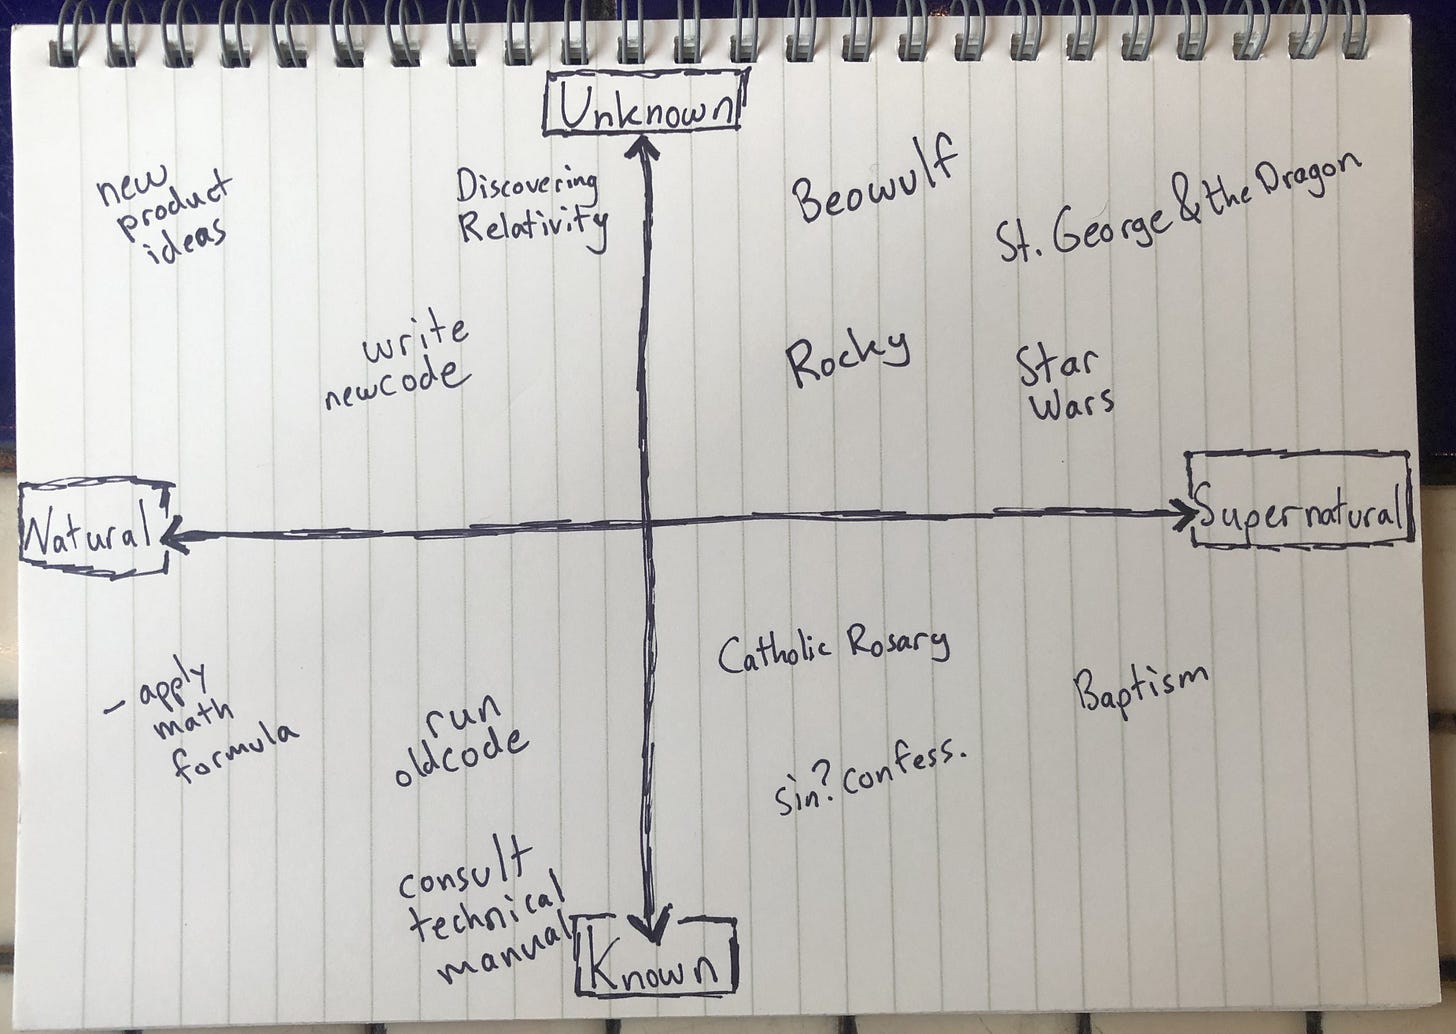 Unknown
new
product
ideas
Discovering
Relativity
Beowulf
St. George & the Dragon
write
newcode
Rocky
Star
Wars
Natural
Supernatural
- apply
math
formula
run
oldcode
Catholic Rosary
Baptism
sin? confess.
consult
technical
manual
Known